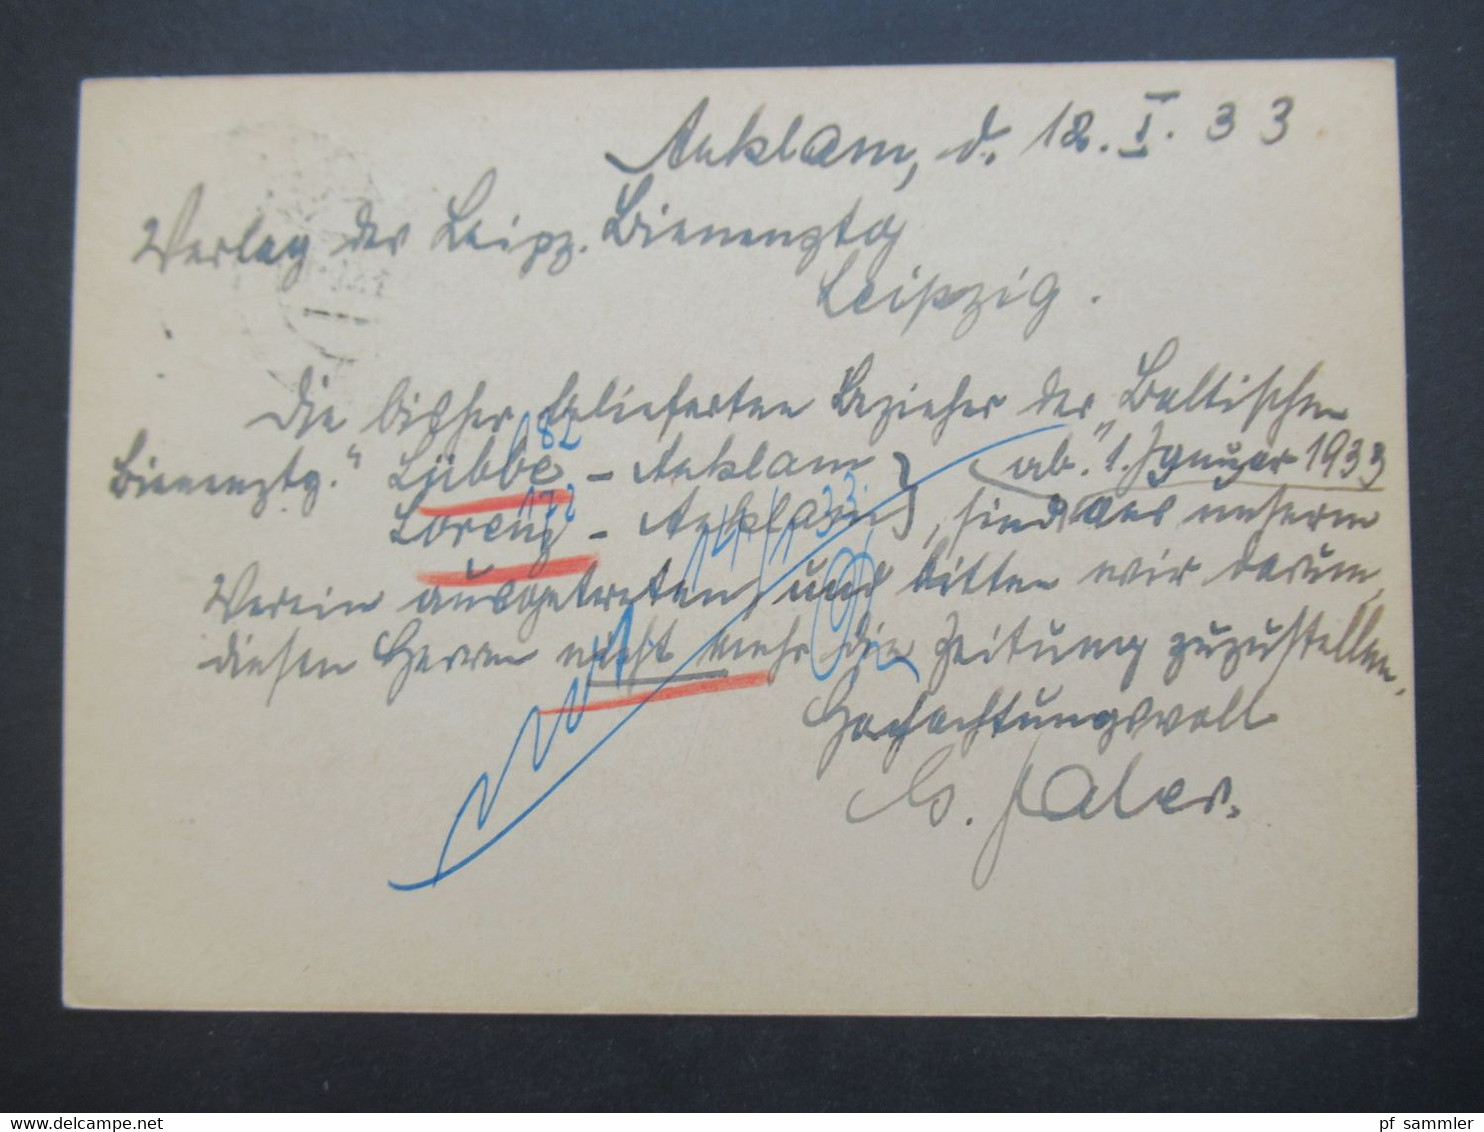 Anklam, d. 12. I. 33
Verlag der Leipz. Bienenztg
Leipzig.
Die bisher belieferten Bezieher der Baltischen
Bienenztg." Lübbe 182 - Anklam } (ab." 1. Januar 1933
Lorenz 172 - Anklam } , sind aus unserm
14/1 33.
Verein ausgetreten, und bitten wir darum,
diesen Herren nicht mehr die Zeitung zuzustellen.
Hochachtungsvoll
delcampe.net
pf_sammler